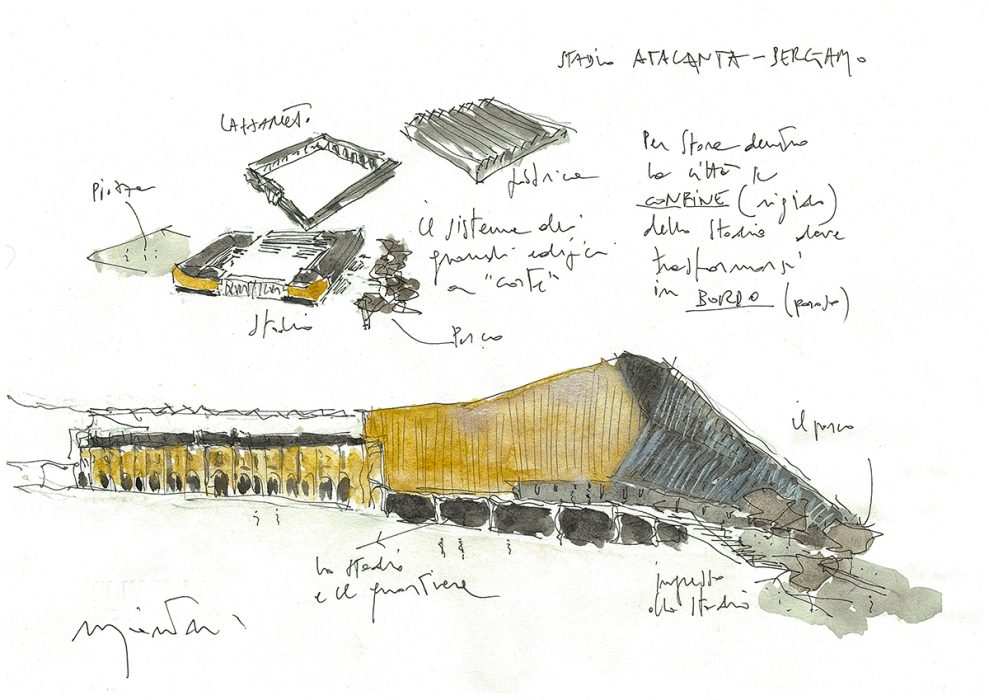 STADIO ATALANTA - BERGAMO
LAZZARETTO
fabbrica
Piazza
Per stare dentro
la città il
CONFINE (rigido)
dello stadio deve
trasformarsi
in BORDO (poroso)
il sistema dei
grandi edifici
a "corte"
stadio
Parco
il parco
lo stadio
e il quartiere
ingresso
allo stadio